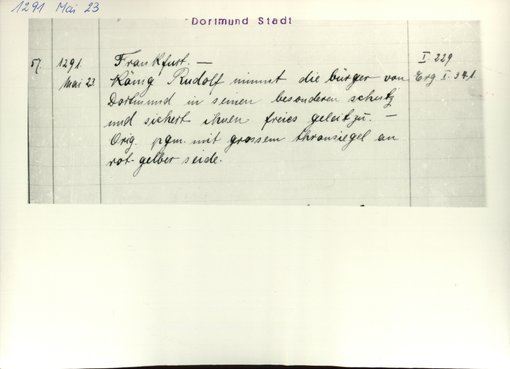 1291 Mai 23
Dortmund Stadt
57. 1291 Frankfurt. — I 229
Mai 23 König Rudolf nimmt die bürger von Erg I. 341
Dortmund in seinen besonderen schutz
und sichert ihnen freies geleit zu. —
Orig. pgm. mit grossem thronsiegel an
rot-gelber seide.